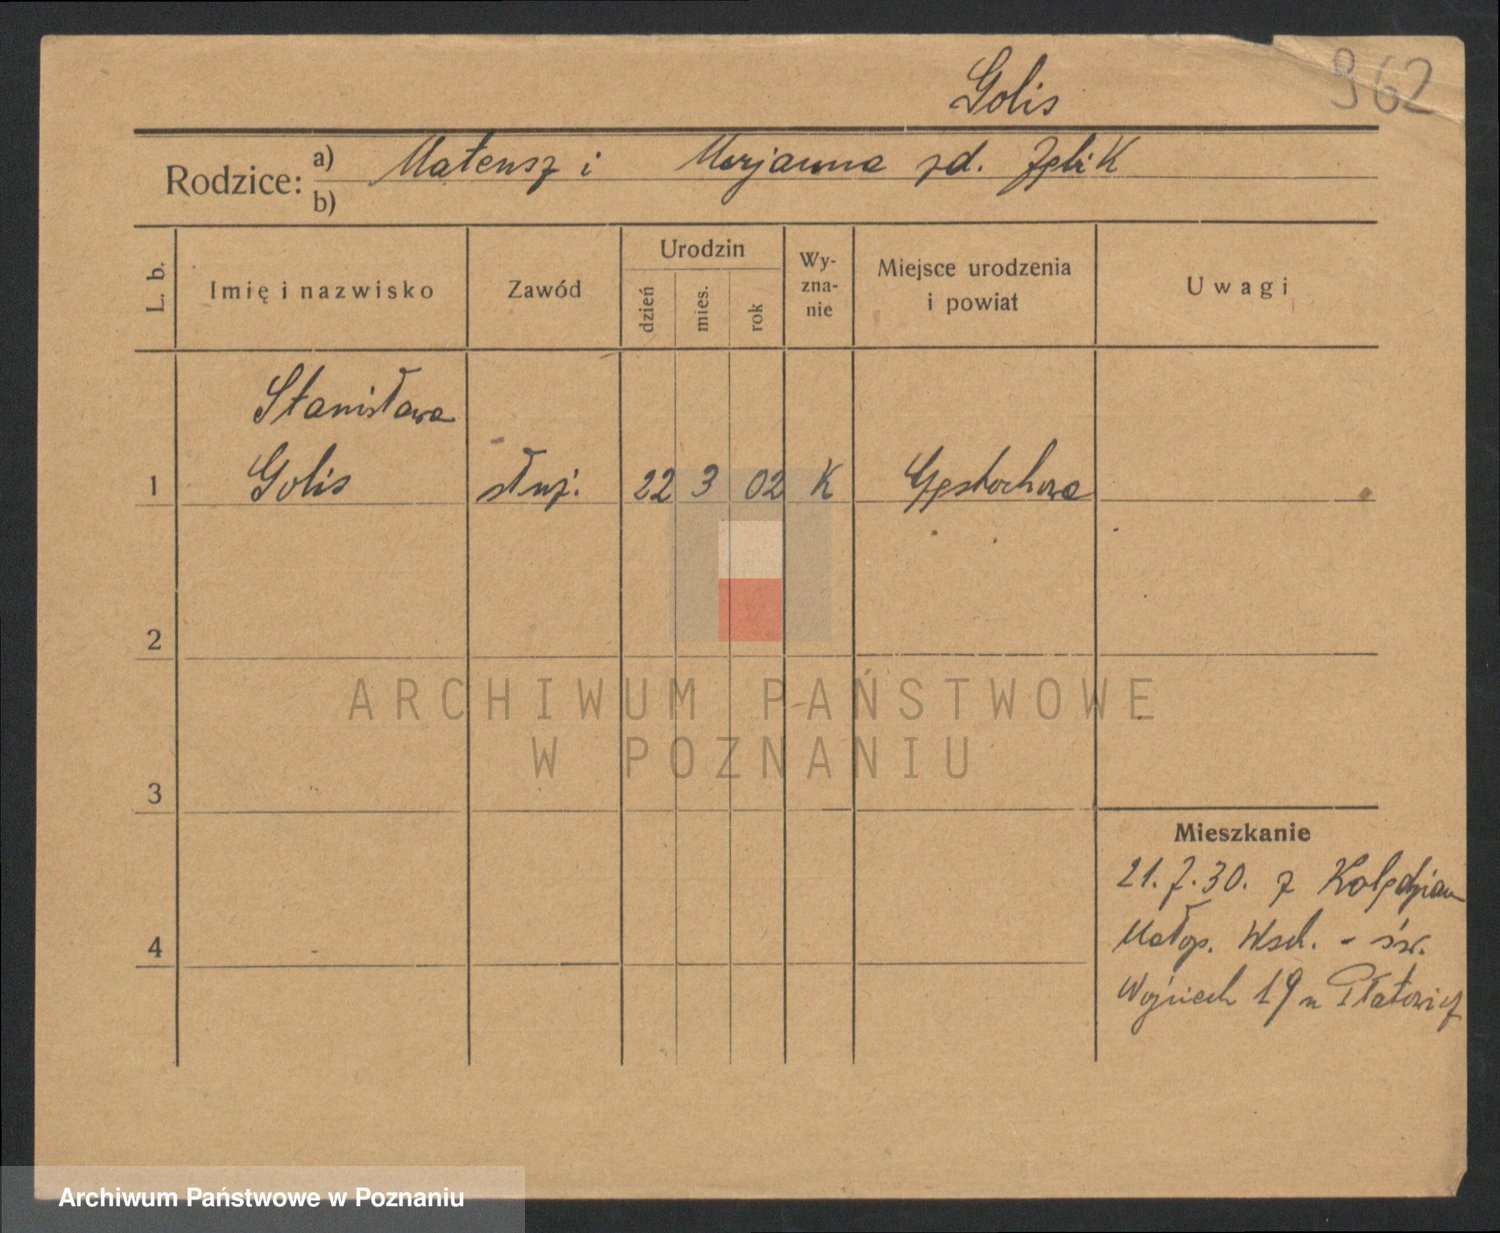 Golis
962
Rodzice: a) Mateusz i Marjanna zd.
b)
L. b.
Imię i nazwisko
Zawód
Urodzin
dzień
mies.
rok
Wy-
zna-
nie
Miejsce urodzenia
i powiat
Uwagi
Stanisława
1 Golis służ. 22 3 02 K Częstochowa
2
3
4
Mieszkanie
21.7.30. z
Małop. Wsch. - św.
Wojciech 19 u
ARCHIWUM PAŃSTWOWE
W POZNANIU
Archiwum Państwowe w Poznaniu